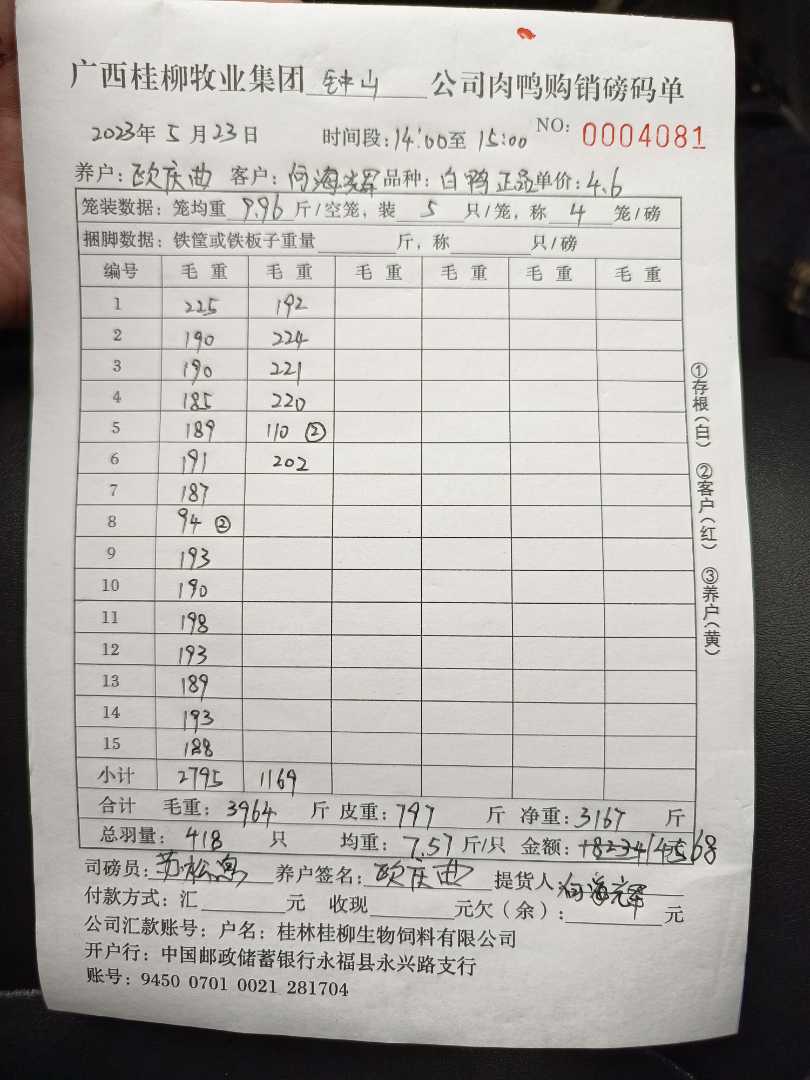 广西桂柳牧业集团 钟山 公司肉鸭购销磅码单
2023年 5 月 23 日 时间段: 14:00 至 15:00 NO: 0004081
养户: 欧庆曲 客户: 向海辉 品种: 白鸭正品 单价: 4.6
笼装数据: 笼均重 9.96 斤/空笼, 装 5 只/笼, 称 4 笼/磅
捆脚数据: 铁筐或铁板子重量 斤, 称 只/磅
编号 毛重 毛重 毛重 毛重 毛重 毛重
1 225 192
2 190 224
3 190 221
4 185 220
5 189 110 ②
6 191 202
7 187
8 94 ②
9 193
10 190
11 198
12 193
13 189
14 193
15 188
小计 2795 1169
合计 毛重: 3964 斤 皮重: 797 斤 净重: 3167 斤
总羽量: 418 只 均重: 7.57 斤/只 金额: 14568
司磅员: 养户签名: 欧庆曲 提货人: 向海辉
付款方式: 汇 元 收现 元欠(余): 元
公司汇款账号: 户名: 桂林桂柳生物饲料有限公司
开户行: 中国邮政储蓄银行永福县永兴路支行
账号: 9450 0701 0021 281704
①存根(白) ②客户(红) ③养户(黄)